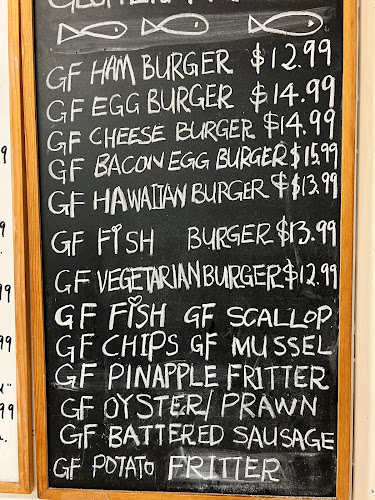 GF HAM BURGER $12.99
GF EGG BURGER $14.99
GF CHEESE BURGER $14.99
GF BACON EGG BURGER $15.99
GF HAWAIIAN BURGER $13.99
GF FISH BURGER $13.99
GF VEGETARIAN BURGER $12.99
GF FISH GF SCALLOP
GF CHIPS GF MUSSEL
GF PINAPPLE FRITTER
GF OYSTER/PRAWN
GF BATTERED SAUSAGE
GF POTATO FRITTER